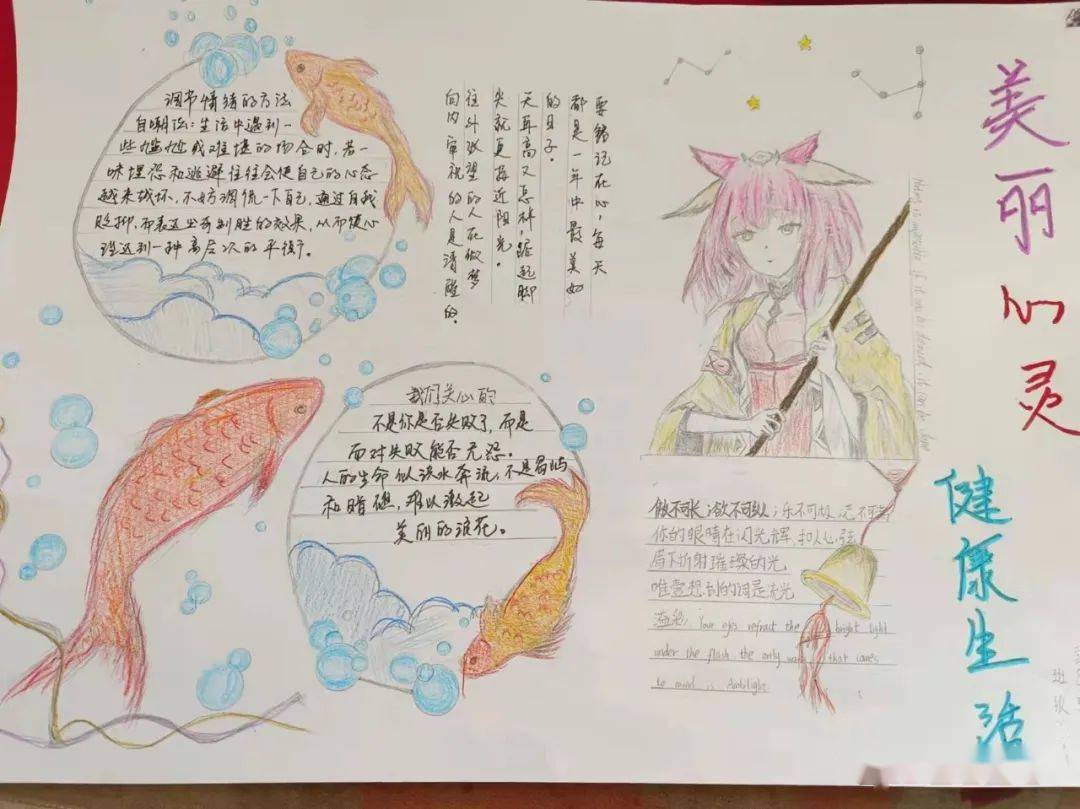 美丽心灵
健康生活
调节情绪的方法
自嘲法:生活中遇到一
些尴尬或难堪的场合时,若一
味埋怨和逃避往往会使自己的心态
越来越坏,不妨调侃一下自己,通过自我
贬抑,而达出奇制胜的效果,从而使心
理达到一种高层次的平衡。
要铭记在心,每天
都是一年中最美好
的日子。
天再高又怎样,踮起脚
尖就更接近阳光。
往外张望的人在做梦
向内审视的人是清醒的。
我们关心的
不是你是否失败了,而是
面对失败能否无怨。
人的生命似洪水奔流,不遇岛屿
和暗礁,难以激起
美丽的浪花。
傲不可长,欲不可纵,乐不可极,志不可满
你的眼睛在闪光辉,扣人心弦
眉下折射璀璨的光
唯一想到的词是流光
溢彩, your eyes refract the bright light
under the flash, the only word that comes
to mind is Ambilight
班级